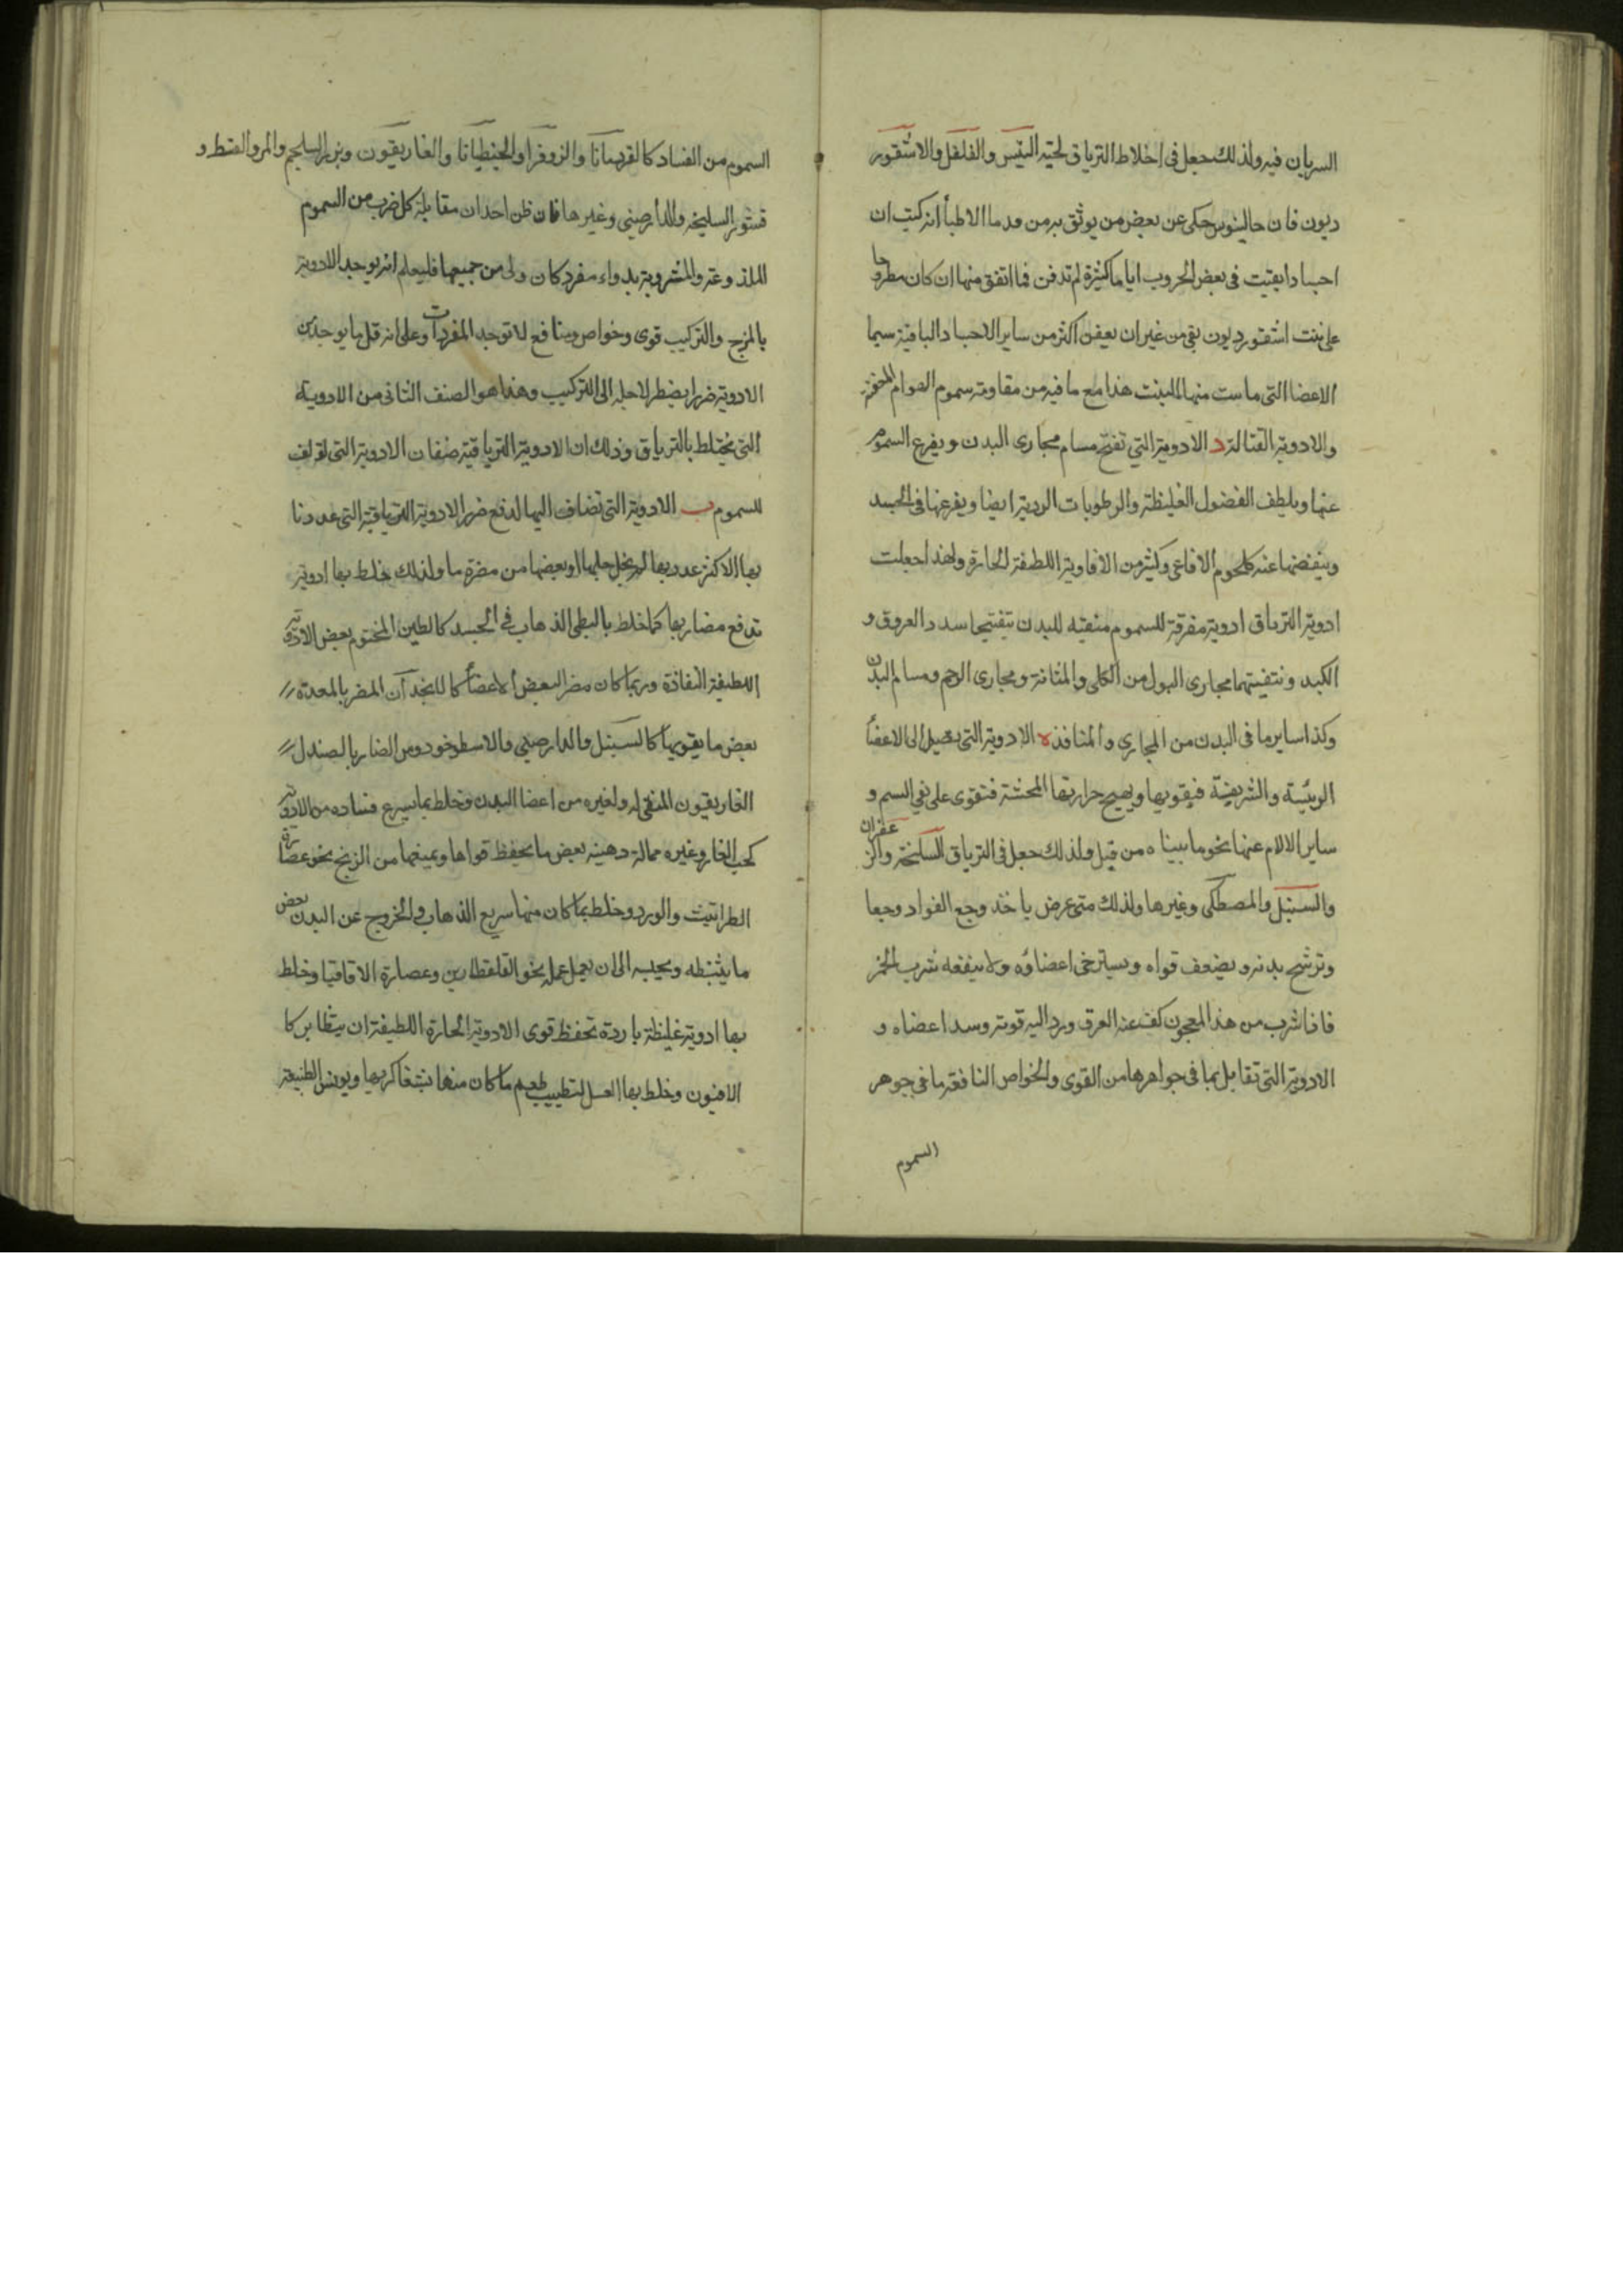 السريان فيه ولذلك جعل في اخلاط الترياق لحية التيس والفلفل والاسقور
ديون فان جالينوس حكى عن بعض من يوثق به من قدما الاطبأ انه كتب ان
اجسادا بقيت في بعض الحروب اياما كثيرة لم تدفن فما اتفق منها ان كان مطروحا
على نبت اسقورديون بقي من غير ان يعفن اكثر من ساير الاجساد الباقية سيما
الاعضا التي ماست منها النبت هذا مع ما فيه من مقاومة سموم الهوام
والادوية القتالة د الادوية التي تفتح مسام مجاري البدن ويفرع السموم
عنها ويلطف الفضول الغليظة والرطوبات الردية ايضا ويفرعها في الجسد
وينفضها عنه كلحوم الافاعي وكثير من الافاوية اللطيفة الحارة ولهذا جعلت
ادوية الترياق ادوية مفرقة للسموم منقيه للبدن بتفتيحها سدد العروق و
الكبد وتنقيتها مجارى البول من الكلى والمثانة ومجارى الرحم ومسام البدن
وكذا ساير ما في البدن من المجاري والمنافذ ه الادوية التي تصل الى الاعضأ
الرئيسة والشريفة فيقويها ويهيج حرارتها فتقوى على نفي السم و
ساير الالام عنها بنحو ما بيناه من قبل ولذلك جعل في الترياق السليخة والزعفران
والسنبل والمصطكى وغيرها ولذلك متى عرض ياخذ وجع الفواد وجعا
وترشح بدنه ويضعف قواه ويسترخى اعضاؤه ولا ينفعه شرب الخمر
فاذا شرب من هذا المعجون كف عنه العرق ورد اليه قوته وسد اعضاه و
الادوية التي تقابل بما في جواهرها من القوى والخواص النافعة ما في جوهر
السموم
السموم من الفساد كالقردمانا والزوفرا والجنطيانا والغاريقون وبزر السلجم والمر والقسط و
قشور السليخه والدارصيني وغيرها فان ظن احد ان مقابلة كل ضرب من السموم
الملذوعة والمشروبة بدواء مفرد كان ولى من جميعها فليعلم انه يوجد للادوية
بالمزج والتركيب قوى وخواص ومنافع لا توجد المفردات وعلى انه قل ما يوجد من
الادوية ضرار يضطر لاجله الى التركيب وهذا هو الصنف الثاني من الادوية
التي يختلط بالترياق وذلك ان الادوية الترياقية صنفان الادوية التي
للسموم ب الادوية التي تضاف اليها لدفع ضرر الادوية الترياقية التي عددنا
بها الاكثر عدد بها لم يخل جلها او بعضها من مضرة ما ولذلك خلط بها ادوية
تدفع مضارها كما خلط بالبطي الذهاب في الجسد كالطين المختوم بعض الادوية
اللطيفة النفاذة وربما كان مضر البعض الاعضأ المضر بالمعدة
بعض ما يقويها كالسنبل والدارصيني والاسطوخودوس الضار بالصندل
الغاريقون المنقى له ولغيره من اعضا البدن وخلط بما يسرع فساده من الادوية
كحب الغار وغيره مماله دهينه بعض ما يحفظ قواها ويمنعها من الزنخ نحو عصارة
الطراثيث والورد وخلط بما كان منها سريع الذهاب والخروج عن البدن بعض
ما يثبطه ويحبسه الى ان يعمل عمله نحو القلقطارين وعصارة الاقاقيا وخلط
بها ادوية غليظة باردة تحفظ قوى الادوية الحارة اللطيفة ان يتطاير كا
الافيون وخلط بها العسل لتطييب طعم ما كان منها بشعا كريها ويونس الطبيعة